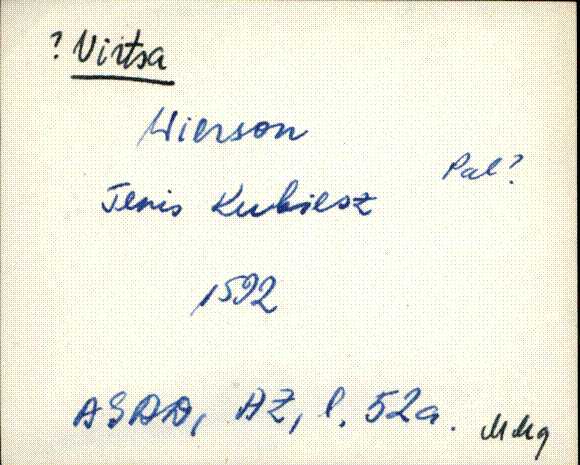 ? Virtsa
Wierson
Pal?
Jenis Kubiesz
1592
ASAD, AZ, l. 52a.
MMg